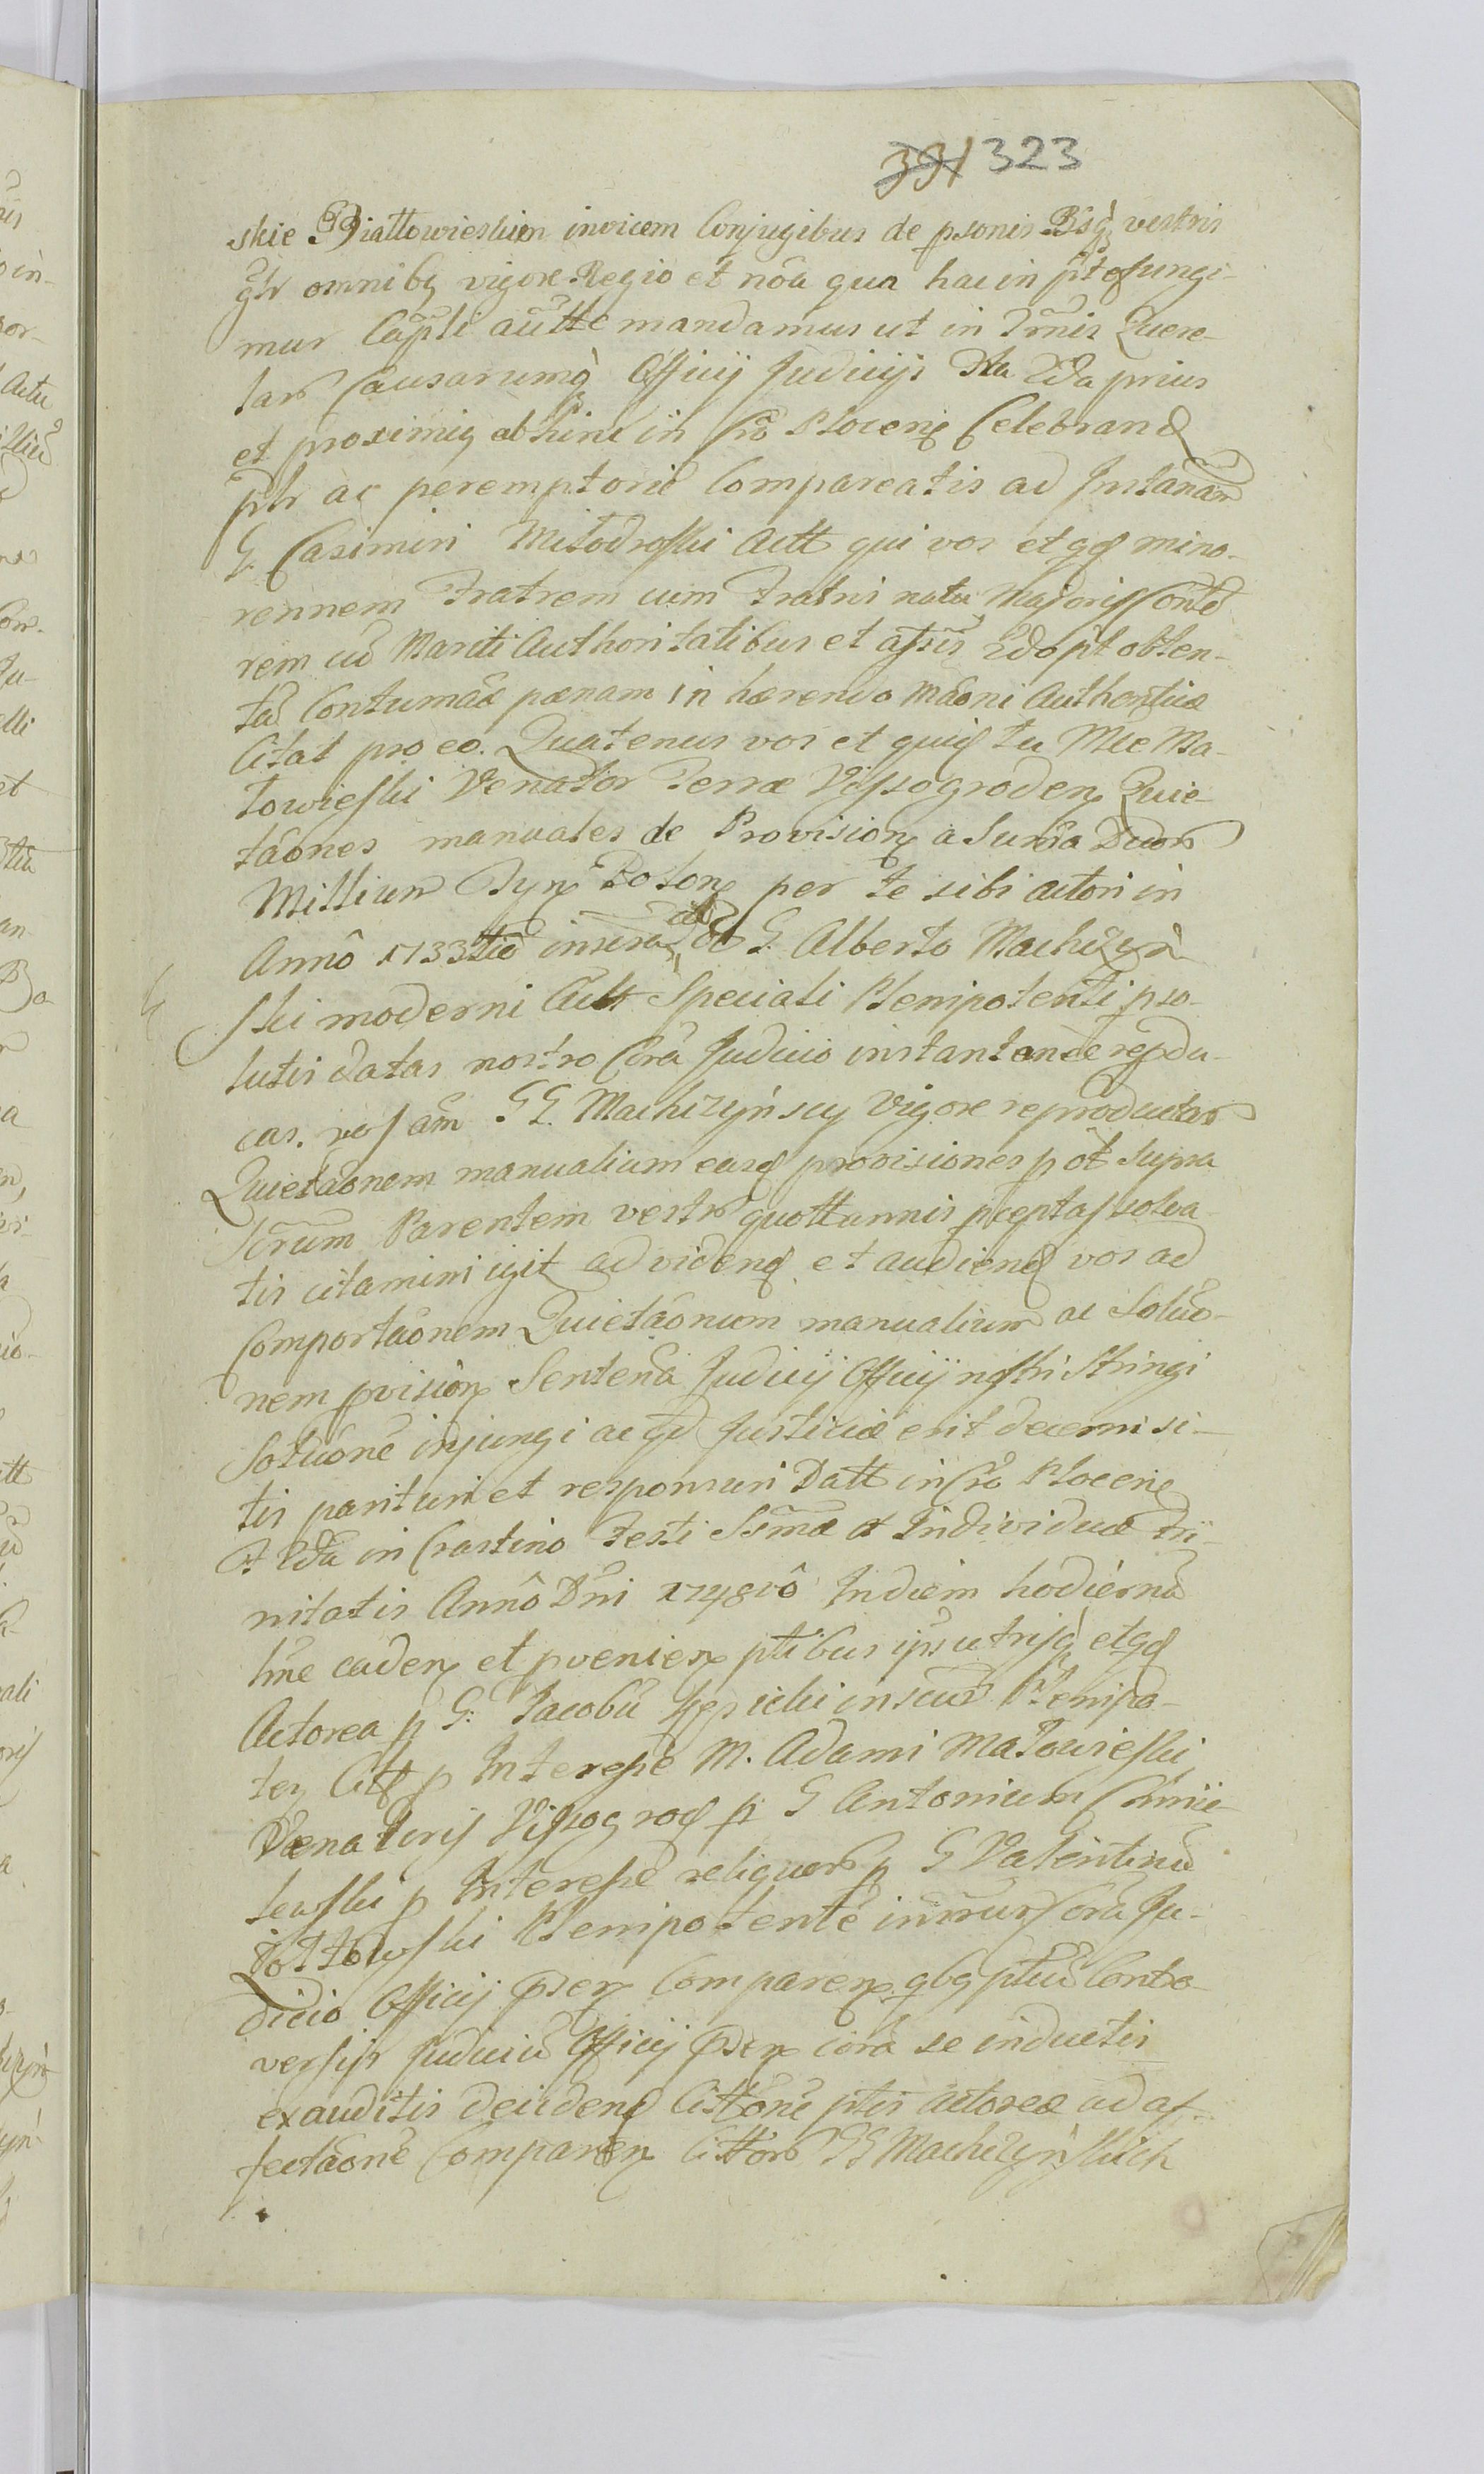 331 323
skie Biattowieskim invicem Conjugibus de psonis Bsq vestris
gnr omnibq vigore Regio et nôa qua hac in pte fungi-
mur Capli autte mandamus ut in Trnis Quere-
lar Causarumq Officij Judicijs Fta 2da prius
et proximiq abhinc in Cro Plocen Celebrand
pttr ac peremptorie Compareatis ad Instanam
G. Casimiri Mitodroski Actt qui vos et qd mino-
rennem Fratrem cum Fratris natu Majoris Sorte
rem cu Mariti Authoritatibus et assis 2do pit obten-
ta Contumae pænam in hærendo Maoni Authenticæ
Citat pro eo. Quatenus vos et quid tu Mce Ma-
towieski Venator Terræ Vissogroden Quie-
taones manuales de Provision a Suma Duor
Millium Tyn Polon per te sibi actori in
Annô 1733tio de G. Alberto Machczyn-
ski moderni Actt Speciali Plenipotenti pso-
lutis datas nostro Cora Judicio instantanee repdu-
cas. vos am GG. Machczyńscy Vigore reproductar
Quietaonem manualium easd provisiones p ot supra
Scrum Parentem vestr quottannis pceptas solva-
tis citamini igit ad videnđ et audienđ vos ad
Comportaonem Quietaonum manualium ac Soluo-
nem pvision Sentena Judicij Officij nostri Stringi
Soluone injungi ac qd Justiciæ erit decerni si-
tis parituri et responsuri Datt in Cro Plocen
F 2da in Crastino Festi Ssmæ et Individuæ Tri-
nitatis Annô Dni 1748vô In diem hodiernu
hne caden et pvenien ptibus ips utrisq etqd
Actorea p G. Jacobu inscu Plenipo-
ten Citt p Interesse M. Adami Matowieski
Venatoris Vissogrod p G Antonium Chmie-
lewski p Interesse reliquor p G Valentinu
Plenipotente Cora Ju-
dicio Officij Psen Comparen qbq ptiu Contro-
versijs Judiciu Officij Psen cora se inductis
exauditis deciđenđ Cittone ptis Actoreæ ad af-
fectaone Comparen Cittor GG Machczyńskich